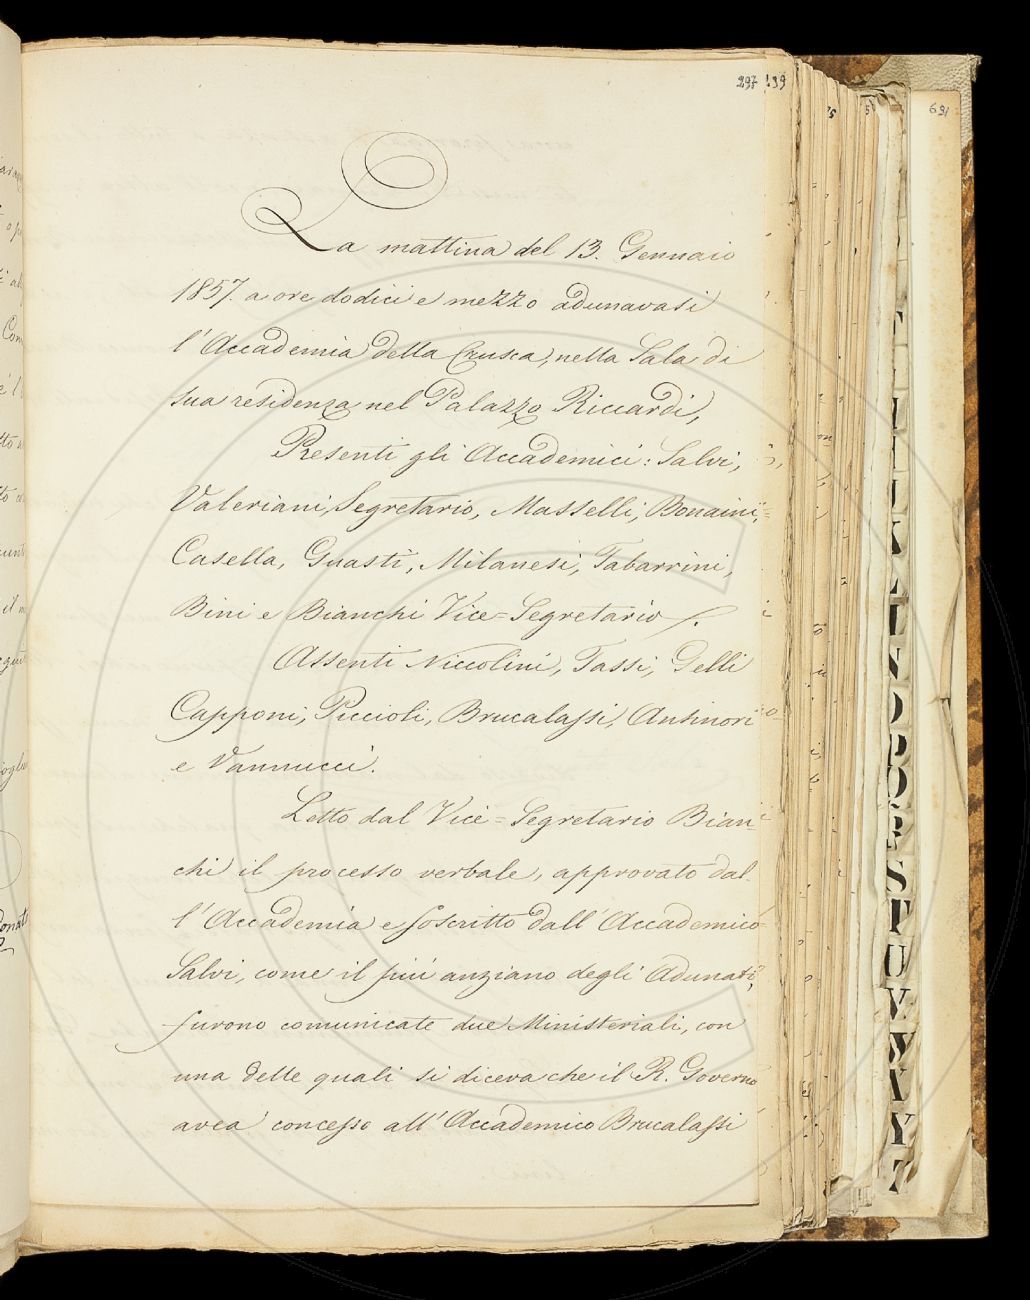 297 139
691
La mattina del 13. Gennaio
1857. a ore dodici e mezzo adunavasi
l'Accademia della Crusca, nella Sala di
sua residenza nel Palazzo Riccardi,
Presenti gli Accademici: Salvi,
Valeriani, Segretario, Masselli, Bonaini,
Casella, Guasti, Milanesi, Tabarrini,
Bini e Bianchi Vice=Segretario.
Assenti Niccolini, Tassi, Delli
Capponi, Piccioli, Brucalassi, Antinori
e Vannucci.
Letto dal Vice=Segretario Bian=
chi il processo verbale, approvato dal=
l'Accademia e soscritto dall'Accademico
Salvi, come il più anziano degli Adunati,
furono comunicate due Ministeriali, con
una delle quali si diceva che il R. Governo
avea concesso all'Accademico Brucalassi
O
P
Q
R
S
T
U
V
W
X
Y
Z